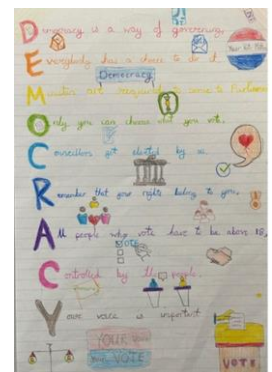 Democracy is a way of governing,
Everybody has a chance to do it
Democracy
Ministers are required to come to Parliament
Only you can choose who you vote.
Councillors get elected by us
Remember that your rights belong to you,
All people who vote have to be above 18,
VOTE
Controlled by the people.
Your voice is important
YOUR
VOTE
VOTE